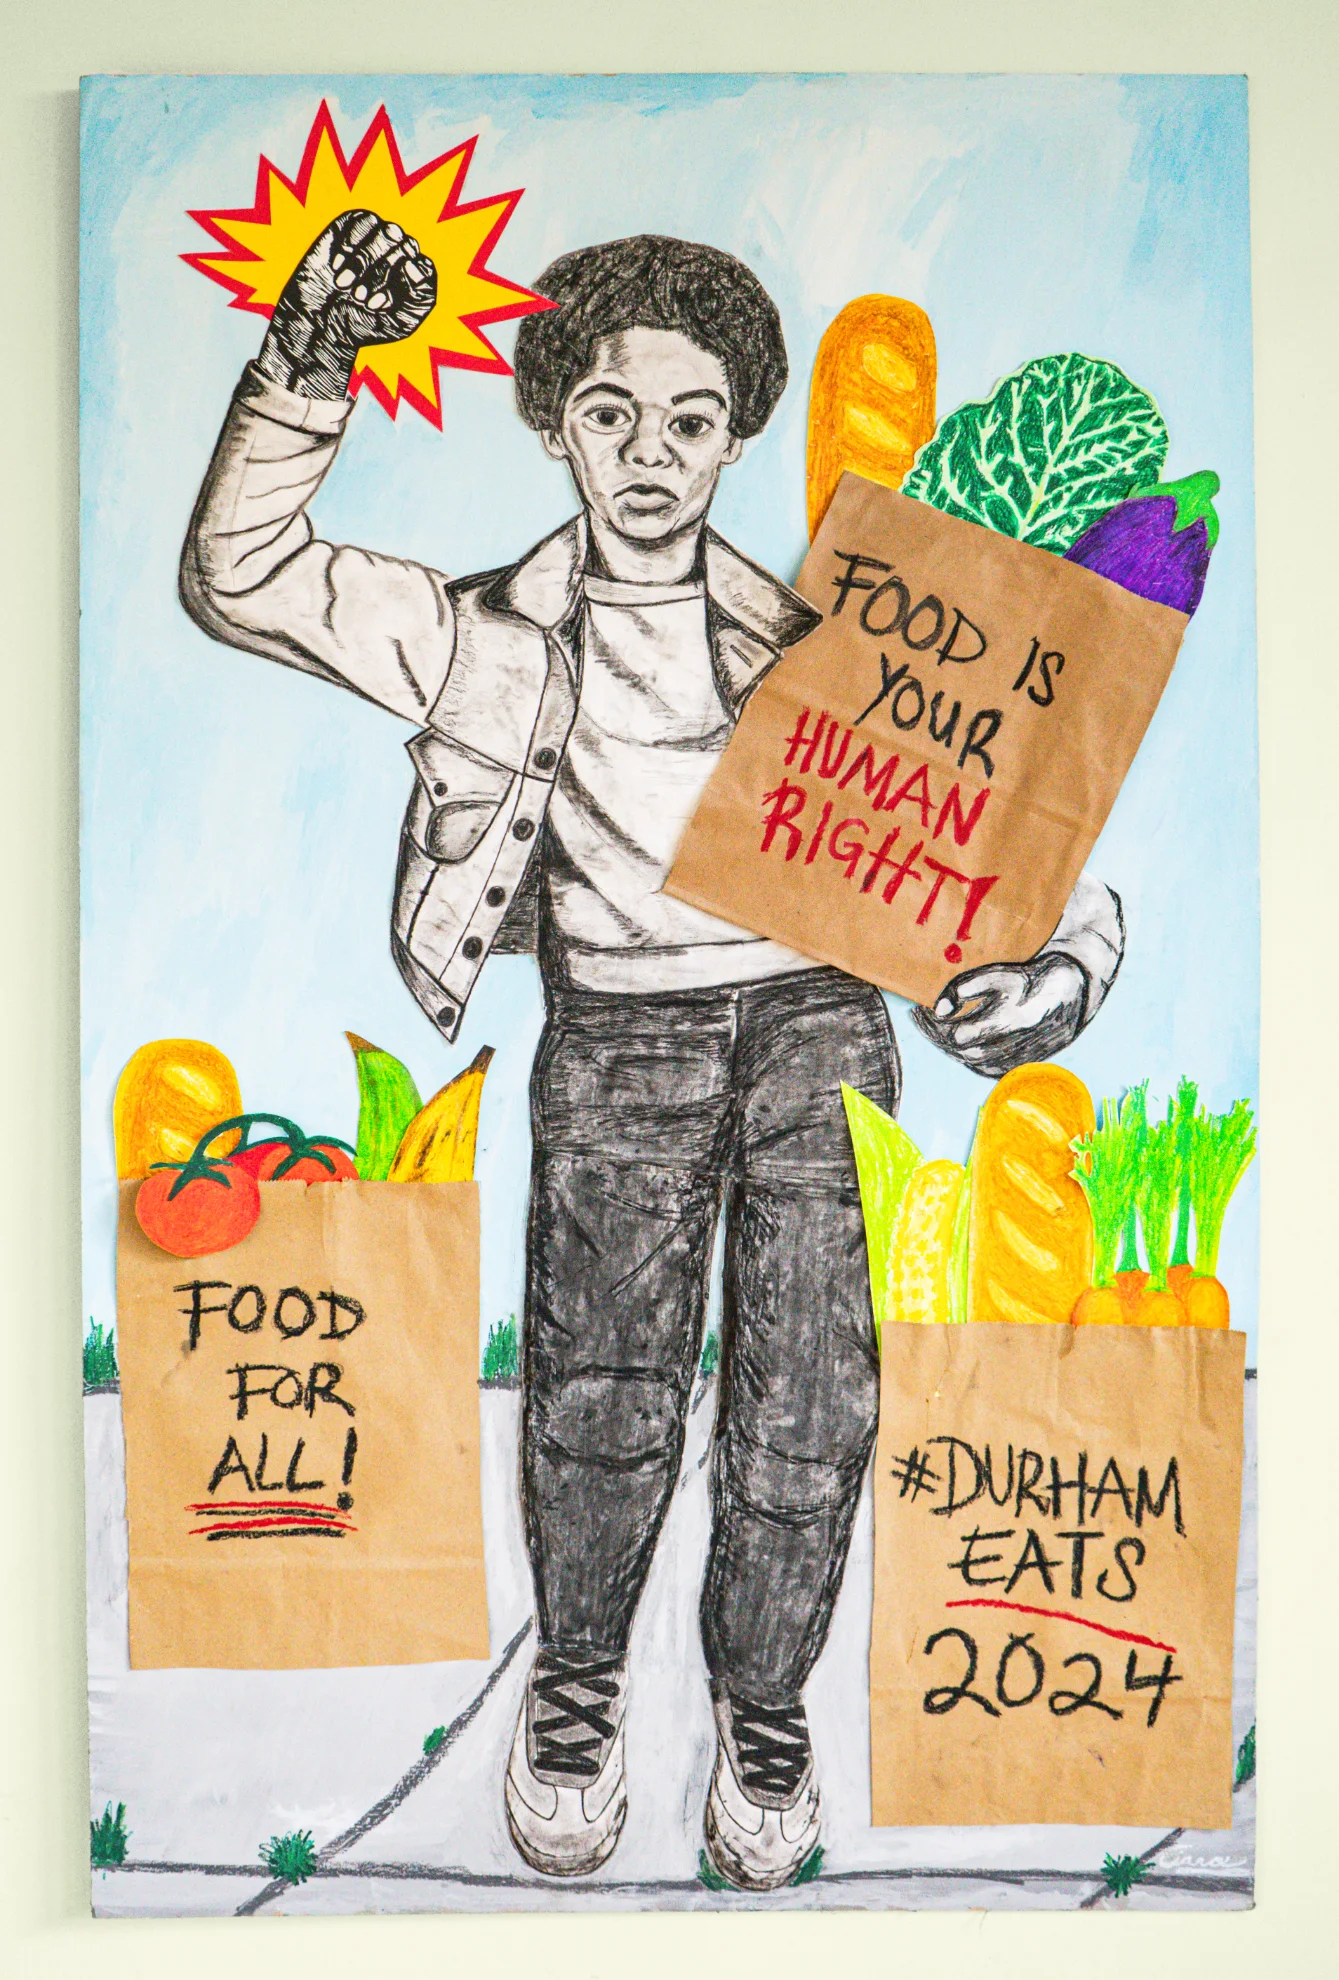 FOOD IS
YOUR
HUMAN
RIGHT!
FOOD
FOR
ALL!
#DURHAM
EATS
2024